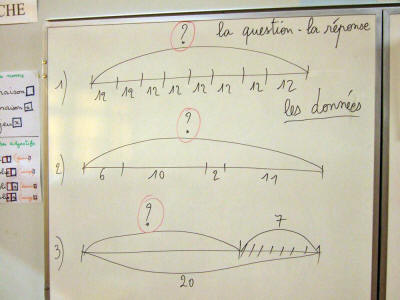 CHE
?
la question - la réponse
1)
12 12 12 12 12 12 12 12
les données
?
2)
6 10 2 11
?
7
3)
20